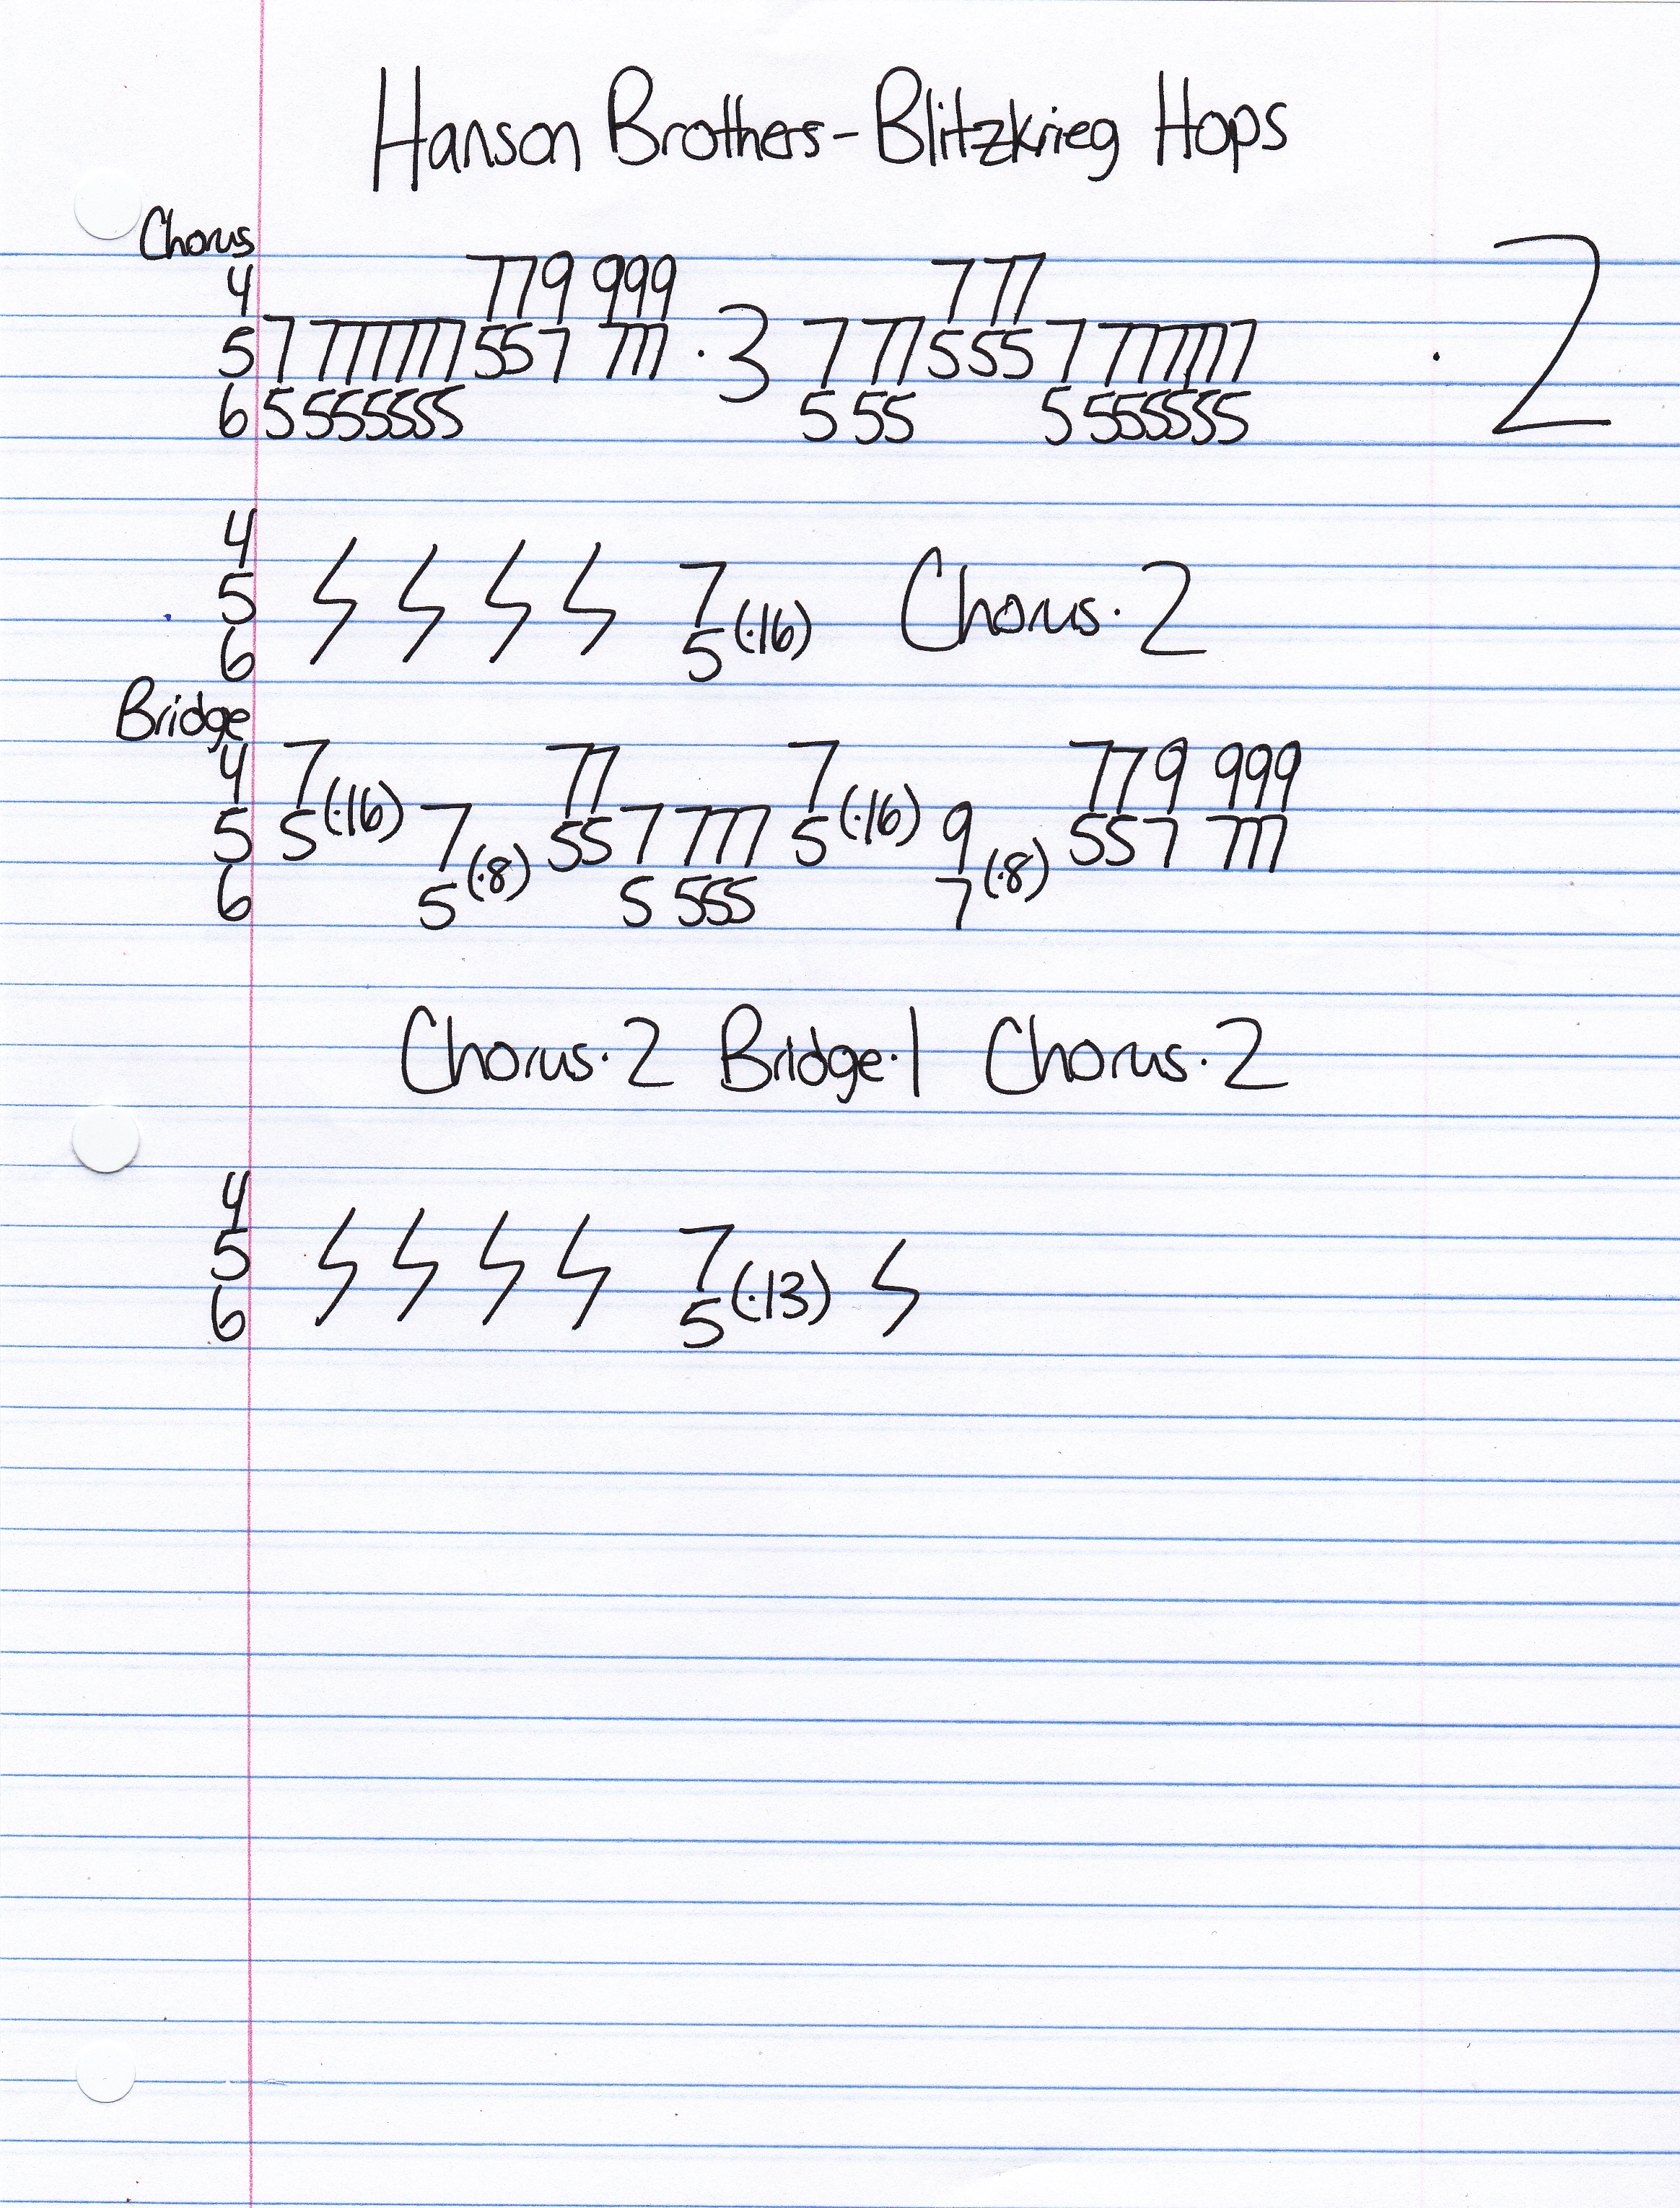 Hanson Brothers-Blitzkrieg Hops
Chorus
4 779 999 7 77
5 7 777777 557 777 ·3 7 77 555 7 777777 ·2
6 5 555555 5 55 5 555555
4
5 7 (·16) Chorus·2
6 5
Bridge
4 7 77 7 779 999
5 5 (·16) 7 55 7 777 5 (·16) 9 557 777
6 5 (·8) 5 555 7 (·8)
Chorus·2 Bridge·1 Chorus·2
4
5 7 (·13)
6 5